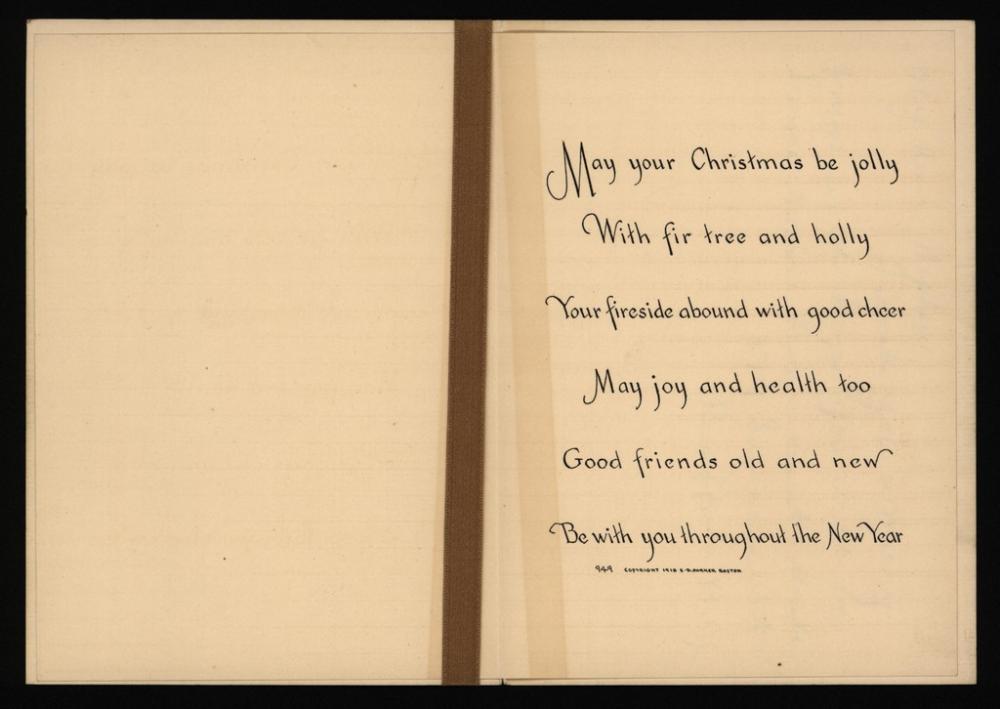 May your Christmas be jolly
With fir tree and holly
Your fireside abound with good cheer
May joy and health too
Good friends old and new
Be with you throughout the New Year
949 COPYRIGHT BOSTON